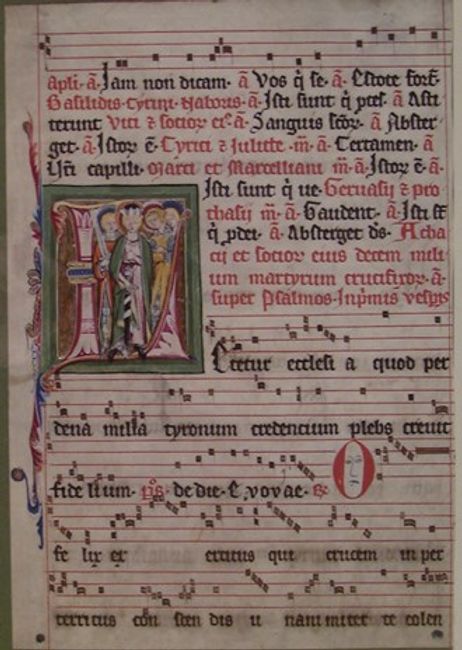 apli· ā· Iam non dicam· ā Vos q̄ se· ā· Estote fort̄
Basilidis· Cyrini· Naboris· ā· Isti sunt q̄ ptes· ā Asti
terunt Viti ⁊ socior ei· ā· Sanguis scōr· ā Abster
get· ā· Istor ē· Cyrici ⁊ Julitte· m̄· ā· Certamen· ā
Vr̄i capilli· Marci et Marcelliani m̄· ā· Istor ē· ā·
Isti sunt q̄ ue· Geruasij ⁊ pro
thasij m̄· ā· Gaudent· ā· Isti st̄
q̄ pdei· ā· Absterget ds̄· Acha
cij et socior eius decem mili
um martyrum crucifixor· ā·
super Psalmos· Inp̄mis vesp̄is
Letetur ecclesi a quod per
dena milia tyronum credencium plebs creuit
fide lium· ps̄· de die· E vovae· R̄ O
fe lix ex ercitus qui crucem in per
territus con scen dis u nanimiter te colen